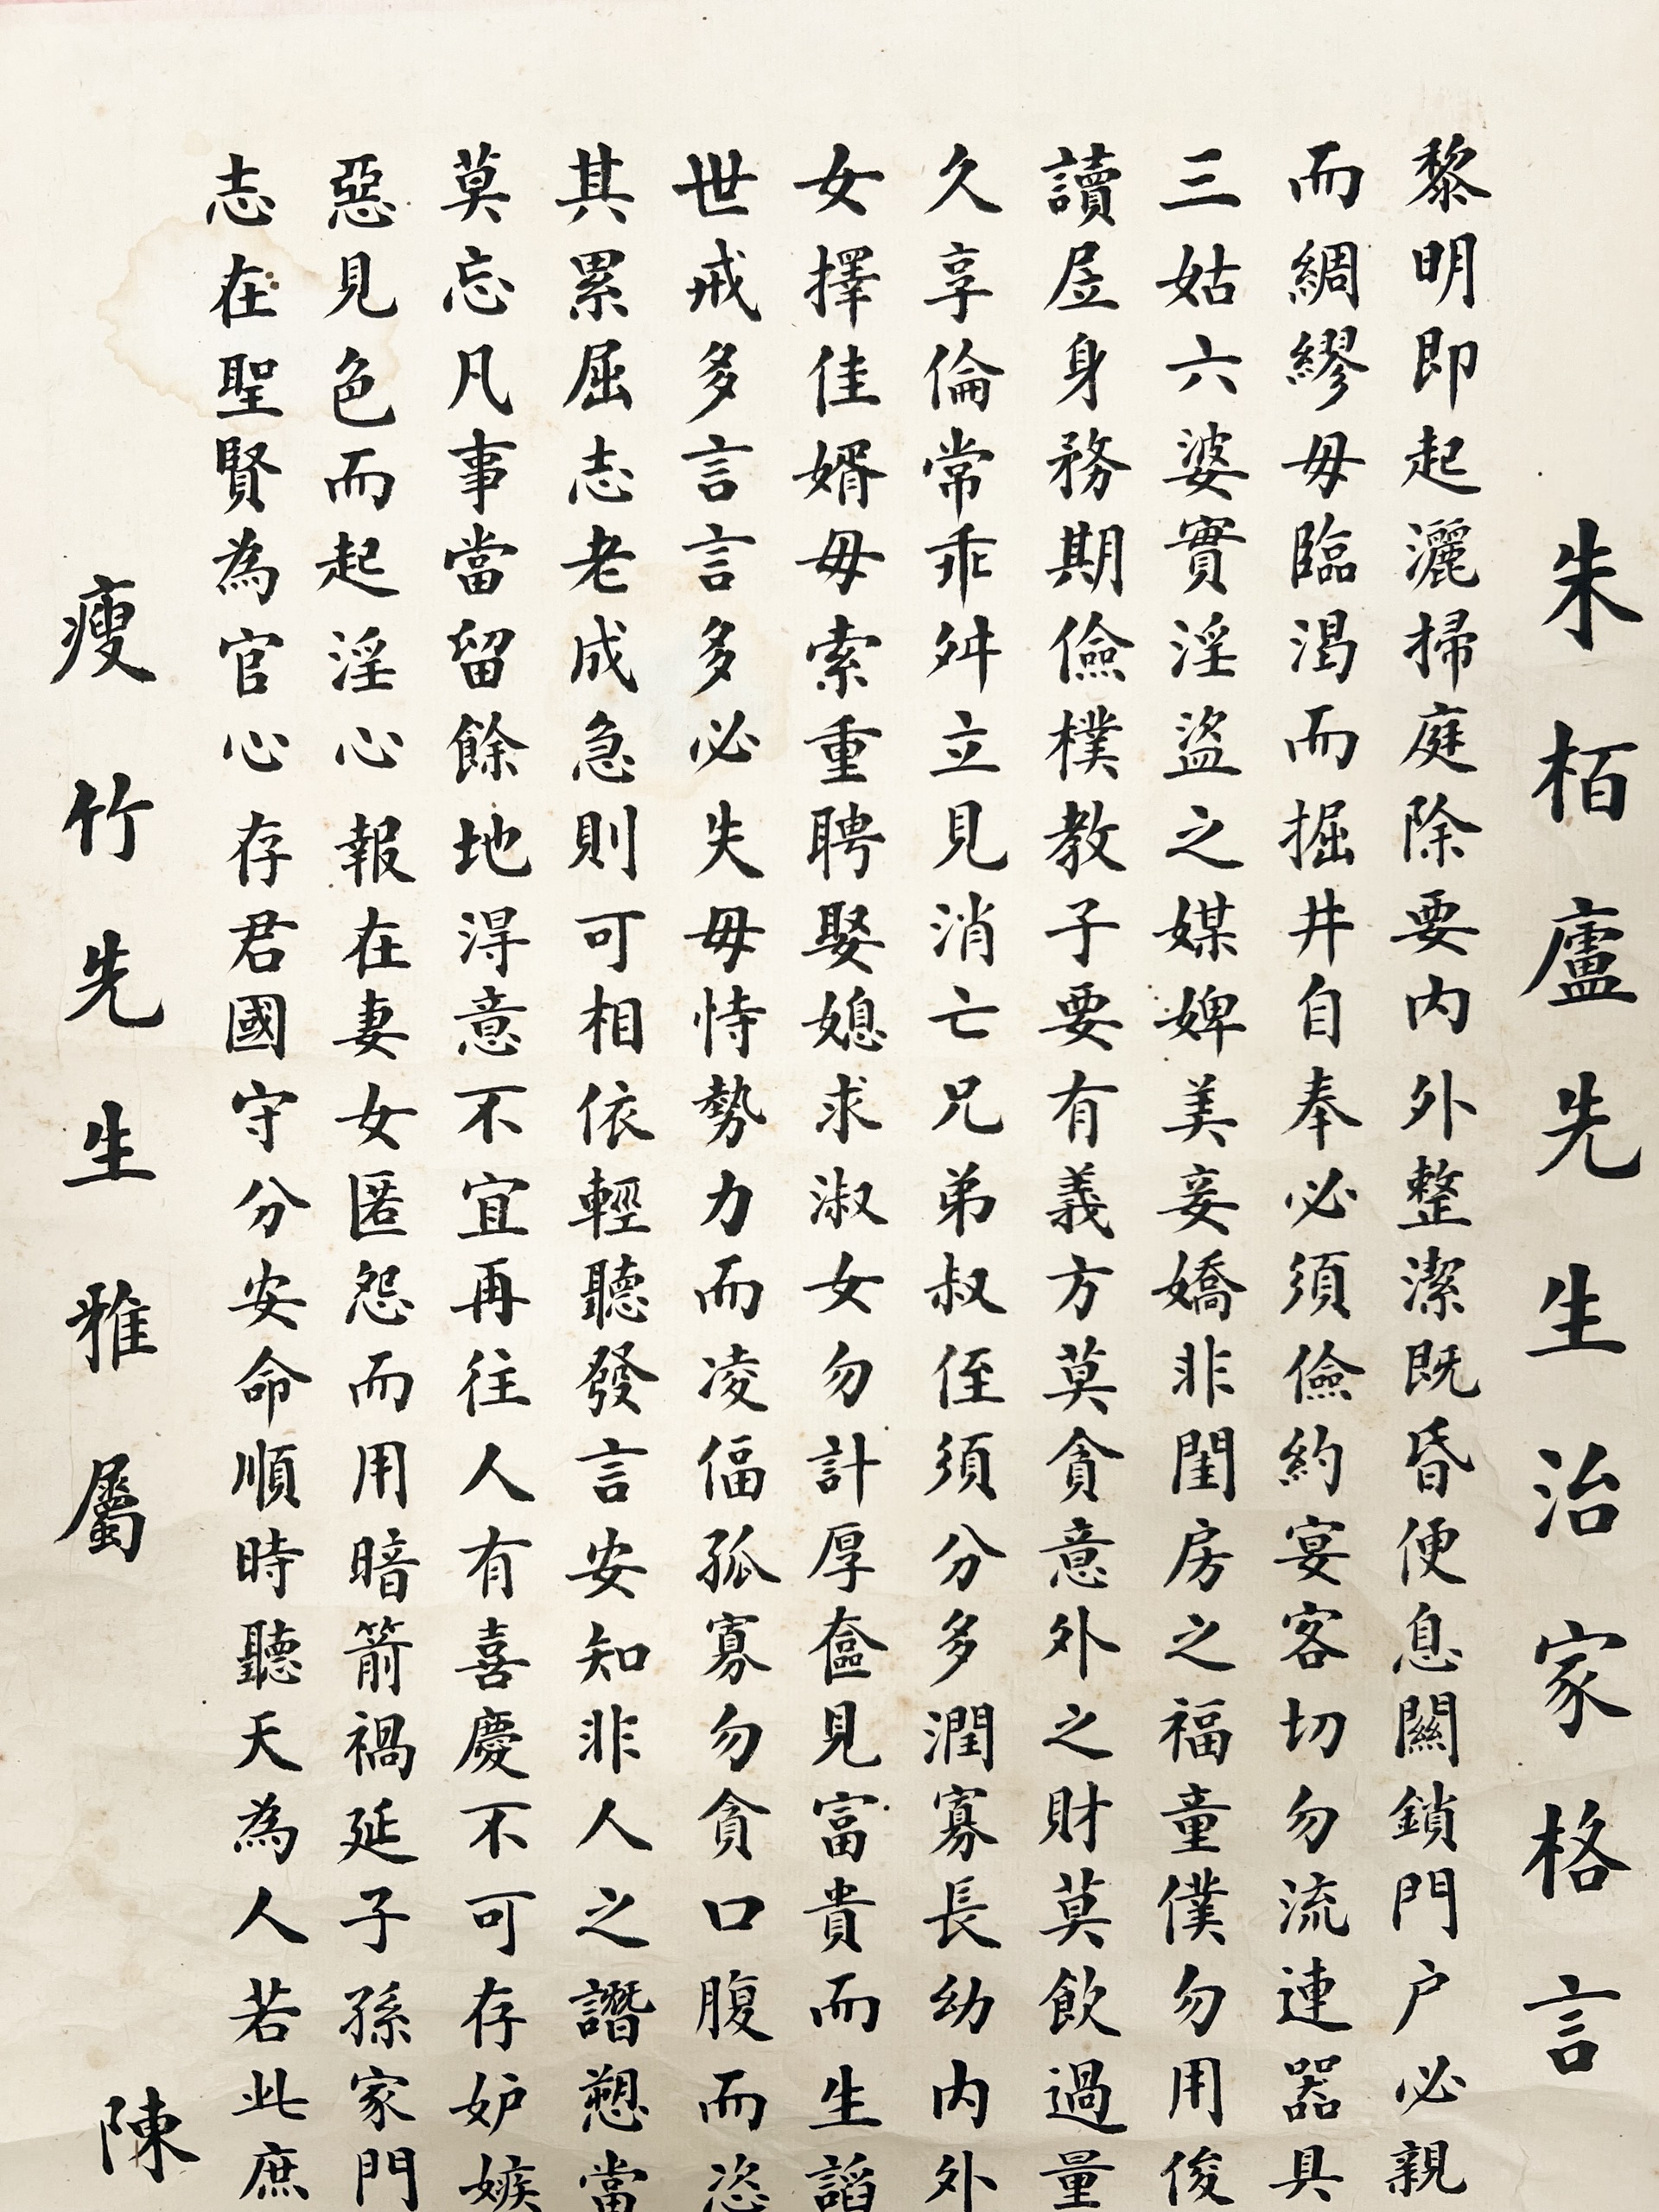 朱栢廬先生治家格言
黎明即起灑掃庭除要内外整潔既昏便息關鎖門户必親
而綢繆毋臨渴而掘井自奉必須儉約宴客切勿流連器具
三姑六婆實淫盜之媒婢美妾嬌非閨房之福童僕勿用俊
讀居身務期儉樸教子要有義方莫貪意外之財莫飲過量
久享倫常乖舛立見消亡兄弟叔侄須分多潤寡長幼内外
女擇佳婿毋索重聘娶媳求淑女勿計厚奩見富貴而生諂
世戒多言言多必失毋恃勢力而凌偪孤寡勿貪口腹而恣
其累屈志老成急則可相依輕聽發言安知非人之譖愬當
莫忘凡事當留餘地淂意不宜再往人有喜慶不可存妒嫉
惡見色而起淫心報在妻女匿怨而用暗箭禍延子孫家門
志在聖賢為官心存君國守分安命順時聽天為人若此庶
瘦竹先生雅屬
陳